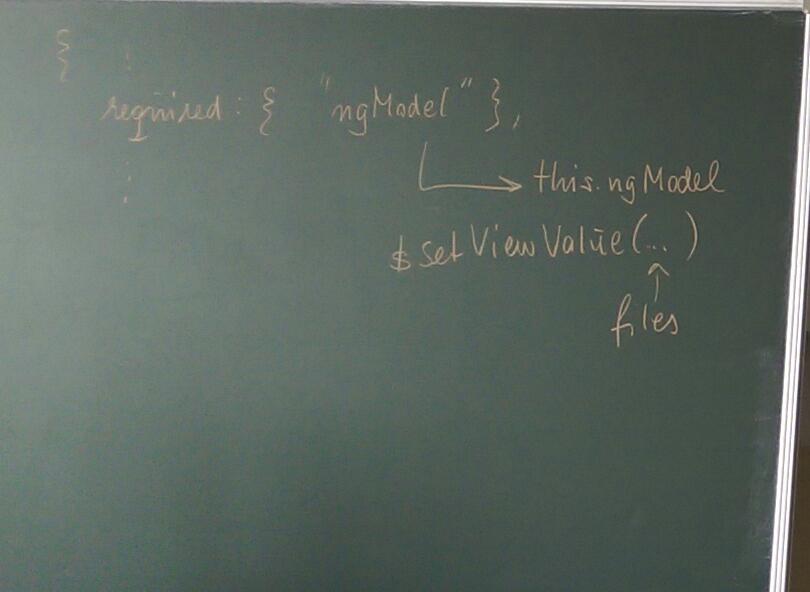 {
:
required: { "ngModel" },
:
this.ngModel
$setViewValue(...)
files